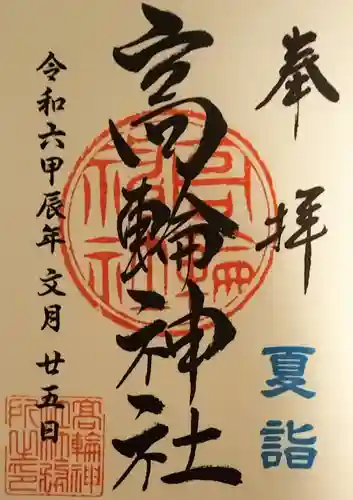 奉拝
夏詣
高輪神社
令和六甲辰年 文月 廿五日
高輪神社
髙輪神社社務所之印